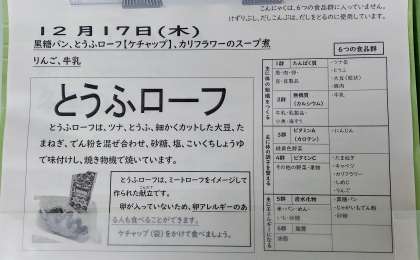 こんにゃくは、6つの食品群に入っていません。
けずりぶし、だしこんぶは、だしをとるのに使用しています。
12月17日(木)
黒糖パン、とうふローフ【ケチャップ】、カリフラワーのスープ煮
りんご、牛乳
とうふローフ
とうふローフは、ツナ、とうふ、細かくカットした大豆、た
まねぎ、でん粉を混ぜ合わせ、砂糖、塩、こいくちしょうゆ
で味付けし、焼き物機で焼いています。
とうふローフは、ミートローフをイメージして
作られた献立です。
卵が入っていないため、卵アレルギーのあ
る人も食べることができます。
ケチャップ(袋)をかけて食べましょう。
6つの食品群
1群 たんぱく質
魚・肉・卵・
豆・豆製品
・ツナ缶
・とうふ
・大豆
・豚肉
2群 無機質
(カルシウム)
牛乳・乳製品・
小魚・海そう
・牛乳
3群 ビタミンA
(カロテン)
緑黄色野菜
・にんじん
4群 ビタミンC
その他の野菜・果物
・たまねぎ
・キャベツ
・カリフラワー
・しめじ
・りんご
5群 炭水化物
米・パン・めん・
いも・砂糖
・黒糖パン
・じゃがいもでん粉
・砂糖
6群 脂質
油脂